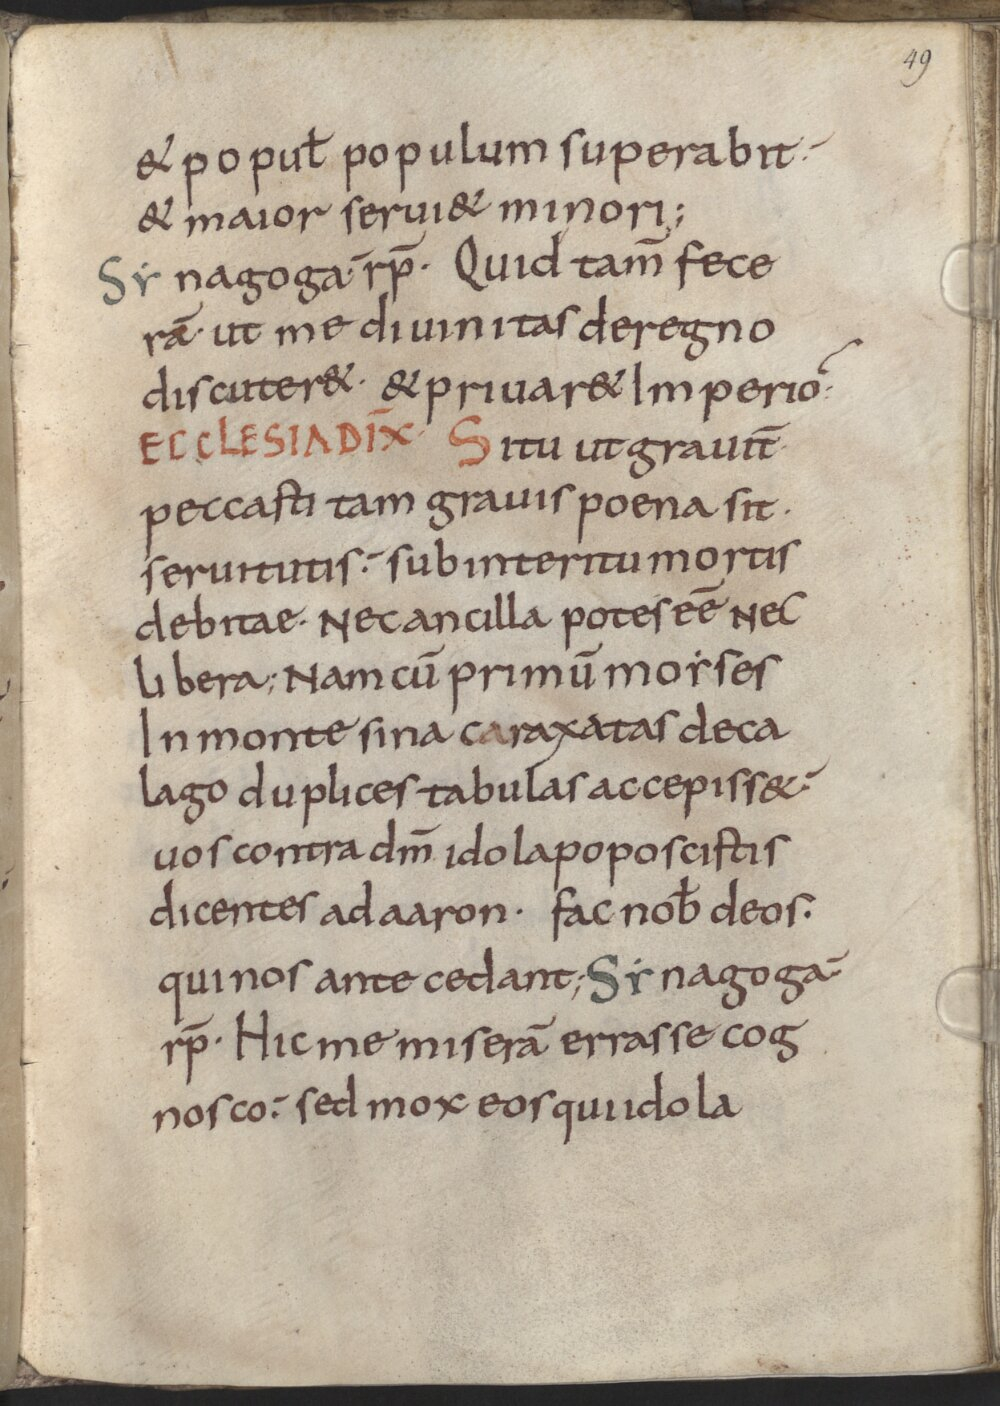 49
& popul̄ populum superabit.
& maior serui& minori;
Sẏnagoga r̄p̄. Quid tam̄ fece
rā. ut me diuinitas deregno
discuter&. & priuar& Imperio.
ECCLESIA DIX̄. Situ ut grauit̄
peccasti tam grauis poena sit.
seruitutis. sub interitu mortis
debitae. Nec ancilla potes eē Nec
libera; Nam cū primū moẏses
In monte sina caraxatas deca
lago duplices tabulas accepiss&.
uos contra dm̄ idola poposcistis
dicentes ad aaron. fac nob̄ deos.
qui nos ante cedant; Sẏnagoga
r̄p̄. Hic me miserā errasse cog
nosco. sed mox eos qui idola